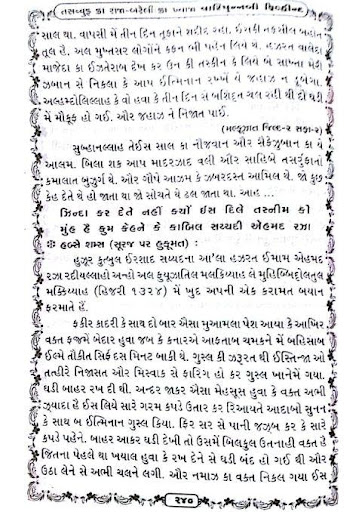 તસવ્વુફ કા રાજા-બરેલી કા ખ્વાજા વારિષુન્નબી ફિલહિન્દ
સાલ થા. વાપસી મેં તીન દિન તુફાને શદીદ રહા. ઈસકી તફસીલ બહોત
તૂલ હૈ. અલ મુખ્તસર લોગોંને કફન ભી પહેન લિયે થે. હઝરત વાલેદા
માજેદા કા ઈઝતેરાબ દેખ કર ઉન કી તસ્કીન કે લિયે બે સાખ્તા મેરી
ઝબાન સે નિકલા કે આપ ઈત્મિનાન રખ્ખેં યે જહાઝ ન ડૂબેગા.
અલ્હમ્દોલિલ્લાહ કે વો હવા કે તીન દિન સે બશિદ્દત ચલ રહી થી દો ઘડી
મેં મૌકૂફ હો ગઈ. ઔર જહાઝ ને નિજાત પાઈ.
(મલ્ફૂઝાત જિલ્દ-૨ સફા-૨)
સુબ્હાનલ્લાહ તેઈસ સાલ કા નૌજવાન ઔર સૈફેઝુબાન કા યે
આલમ. બિલા શક આપ માદરઝાદ વલી ઔર સાહિબે તસર્રૂફાનો
કમાલાત બુઝુર્ગ થે. ઔર ગૌષે આઝમ કે ઝબરદસ્ત આમિલ થે. જો કુછ
કેહ દેતે થે હો જાતા થા જો સોચતે થે ઢલ જાતા થા. આહ ...
ઝિન્દા કર દેતે નહીં ક્યોં ઈસ દિલે તસ્નીમ કો
મુંહ હૈ કુમ કેહને કે કાબિલ સય્યદી એહમદ રઝા
હબ્સે શમ્સ (સૂરજ પર હુકૂમત) :
હુઝૂર કુત્બુલ ઈરસાદ સય્યદના આ'લા હઝરત ઈમામ એહમદ
રઝા રદીયલ્લાહો અન્હો અલ ફુયૂઝાતિલ મલકિય્યાહ લે મુહિબ્બિદ્દૌલતુલ
મક્કિય્યાહ (હિજરી ૧૩૨૪) મેં ખુદ અપની એક કરામત બયાન
ફરમાતે હૈં.
ફકીર કાદરી કે સાથ દો બાર ઐસા મુઆમલા પેશ આયા કે આખિર
વક્ત ફજમેં બેદાર હુવા જબ કે કનારએ આફતાબ ચમકને મેં બહિસાબ
ઈલ્મે તૌકીત સિર્ફ દસ મિનટ બાકી થે. ગુસ્લ કી ઝરૂરત થી ઈસ્તિન્જા ઓ
તત્હીરે નિજાસત ઔર મિસ્વાક સે ફારિગ હો કર ગુસ્લ ખાનેમેં ગયા.
ઘડી બાહર રખ દી થી. અન્દર જાકર ઐસા મેહસૂસ હુવા કે વક્ત અભી
ઝ્યાદા હૈ ઈસ લિયે સારે ગરમ કપડે ઉતાર કર રિઆયતે આદાબો સુનન
કે સાથ બ ઈત્મિનાન ગુસ્લ કિયા. ફિર સર સે પાની જઝ્બ કર કે સારે
કપડે પહેને. બાહર આકર ઘડી દેખી તો ઉસમેં બિલ્કુલ ઉતનાહી વક્ત હૈ
જિતના પેહલે થા ખયાલ હુવા કે રખ દેને સે ઘડી બંદ હો ગઈ થી ઔર
ઉઠા લેને સે અભી ચલને લગી. ઔર નમાઝ કા વક્ત નિકલ ગયા ઈસ
૨૪૦